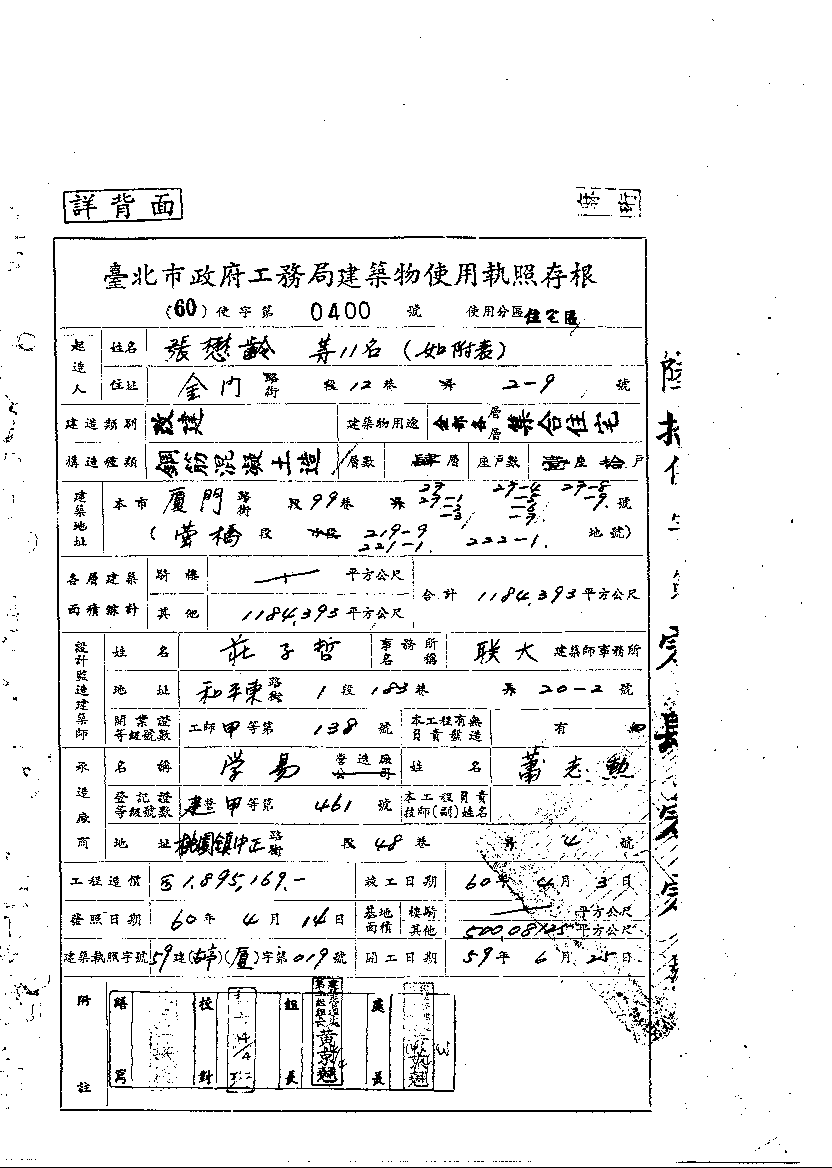 詳背面
臺北市政府工務局建築物使用執照存根
(60)使字第 0400 號 使用分區 住宅區
起造人 姓名 張懋齡 等11名(如附表)
住址 金門 路街 段 12 巷 弄 2-9 號
建造類別 改建 建築物用途 全部各層層 集合住宅
構造種類 鋼筋混凝土造 層數 肆層 座戶數 壹座拾戶
建築地址 本市 厦門 路街 段 99 巷 弄 29 29-1 -2 -3 29-4 -5 -6 -7 29-8 -9 號
(螢橋段 小段 219-9 221-1 222-1 地號)
各層建築面積總計 騎樓 平方公尺 合計 1184.393 平方公尺
其他 1184.393 平方公尺
設計監造建築師 姓名 莊子哲 事務所名稱 联大 建築師事務所
地址 和平東 路街 1 段 183 巷 弄 20-2 號
開業證等級號數 工師 甲 等第 138 號 本工程有無負責監造 有
承造廠商 名稱 学易 營造廠公司 姓名 蕭志勳
登記證等級號數 建登 甲 等第 461 號 本工程負責技師(副)姓名
地址 桃園鎮中正 路街 段 48 巷 弄 4 號
工程造價 1,895,169.- 竣工日期 60年 4月 3日
發照日期 60年 4月 14日 基地面積 樓騎 平方公尺
其他 平方公尺
建築執照字號 59 建(古亭)(厦)字第 019 號 開工日期 59年 6月 25日
附註 繕寫 校對 組長 黃京翹 處長